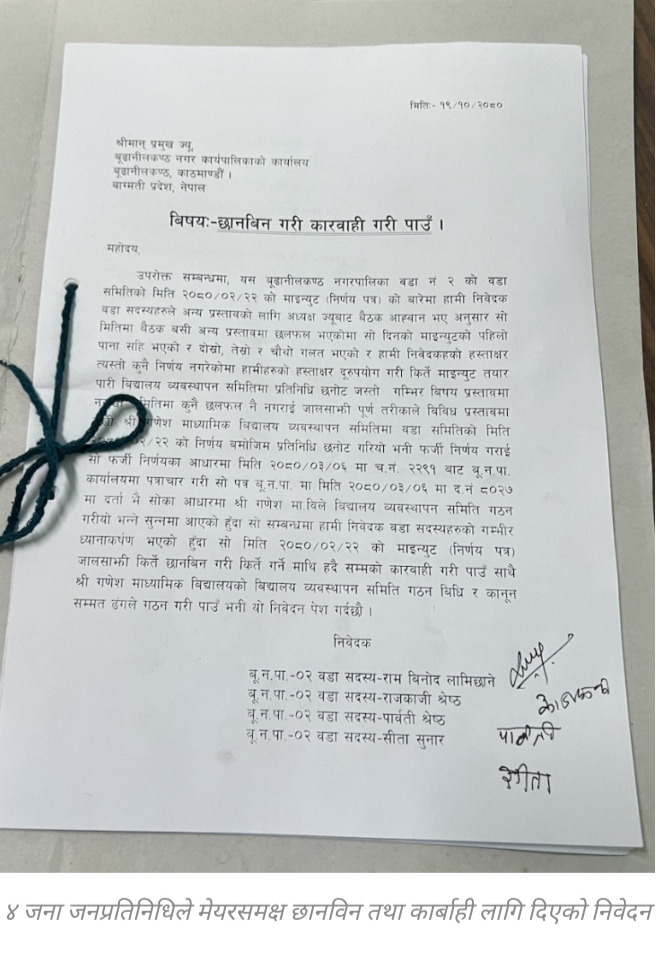 मिति:- १९/१०/२०८०
श्रीमान् प्रमुख ज्यू,
बूढानीलकण्ठ नगर कार्यपालिकाको कार्यालय
बूढानीलकण्ठ, काठमाण्डौं ।
बाग्मती प्रदेश, नेपाल
बिषय:-छानबिन गरी कारवाही गरी पाउँ ।
महोदय,
उपरोक्त सम्बन्धमा, यस बूढानीलकण्ठ नगरपालिका वडा नं २ को वडा
समितिको मिति २०८०/०२/२२ को माइन्युट (निर्णय पत्र) को बारेमा हामी निवेदक
वडा सदस्यहरुले अन्य प्रस्तावको लागि अध्यक्ष ज्यूबाट बैठक आह्वान भए अनुसार सो
मितिमा बैठक बसी अन्य प्रस्तावमा छलफल भएकोमा सो दिनको माइन्युटको पहिलो
पाना सहि भएको र दोस्रो, तेस्रो र चौथो गलत भएको र हामी निवेदकहको हस्ताक्षर
त्यस्तो कुनै निर्णय नगरेकोमा हामीहरुको हस्ताक्षर दूरुपयोग गरी किर्ते माइन्युट तयार
पारी बिद्यालय व्यवस्थापन समितिमा प्रतिनिधि छनोट जस्तो गम्भिर बिषय प्रस्तावमा
मितिमा कुनै छलफल नै नगराई जालसाझी पूर्ण तरीकाले विविध प्रस्तावमा
श्री गणेश माध्यामिक बिद्यालय व्यवस्थापन समितिमा वडा समितिको मिति
/२२ को निर्णय बमोजिम प्रतिनिधि छनोट गरियो भनी फर्जी निर्णय गराई
सो फर्जी निर्णयका आधारमा मिति २०८०/०३/०६ मा च.नं. २२९१ बाट बू.न.पा.
कार्यालयमा पत्राचार गरी सो पत्र बू.न.पा. मा मिति २०८०/०३/०६ मा द.नं ८०२७
मा दर्ता भै सोका आधारमा श्री गणेश मा.विले बिद्यालय व्यवस्थापन समिति गठन
गरीयो भन्ने सुन्नमा आएको हुँदा सो सम्बन्धमा हामी निवेदक वडा सदस्यहरुको गम्भीर
ध्यानाकर्षण भएको हुँदा सो मिति २०८०/०२/२२ को माइन्युट (निर्णय पत्र)
जालसाझी किर्ते छानबिन गरी किर्ते गर्ने माथि हदै सम्मको कारवाही गरी पाउँ साथै
श्री गणेश माध्यामिक बिद्यालयको बिद्यालय व्यवस्थापन समिति गठन बिधि र कानून
सम्मत ढंगले गठन गरी पाउँ भनी यो निवेदन पेश गर्दछौ ।
निवेदक
बू.न.पा.-०२ वडा सदस्य-राम बिनोद लामिछाने
बू.न.पा.-०२ वडा सदस्य-राजकाजी श्रेष्ठ
बू.न.पा.-०२ वडा सदस्य-पार्वती श्रेष्ठ
बू.न.पा.-०२ वडा सदस्य-सीता सुनार
४ जना जनप्रतिनिधिले मेयरसमक्ष छानविन तथा कार्बाही लागि दिएको निवेदन